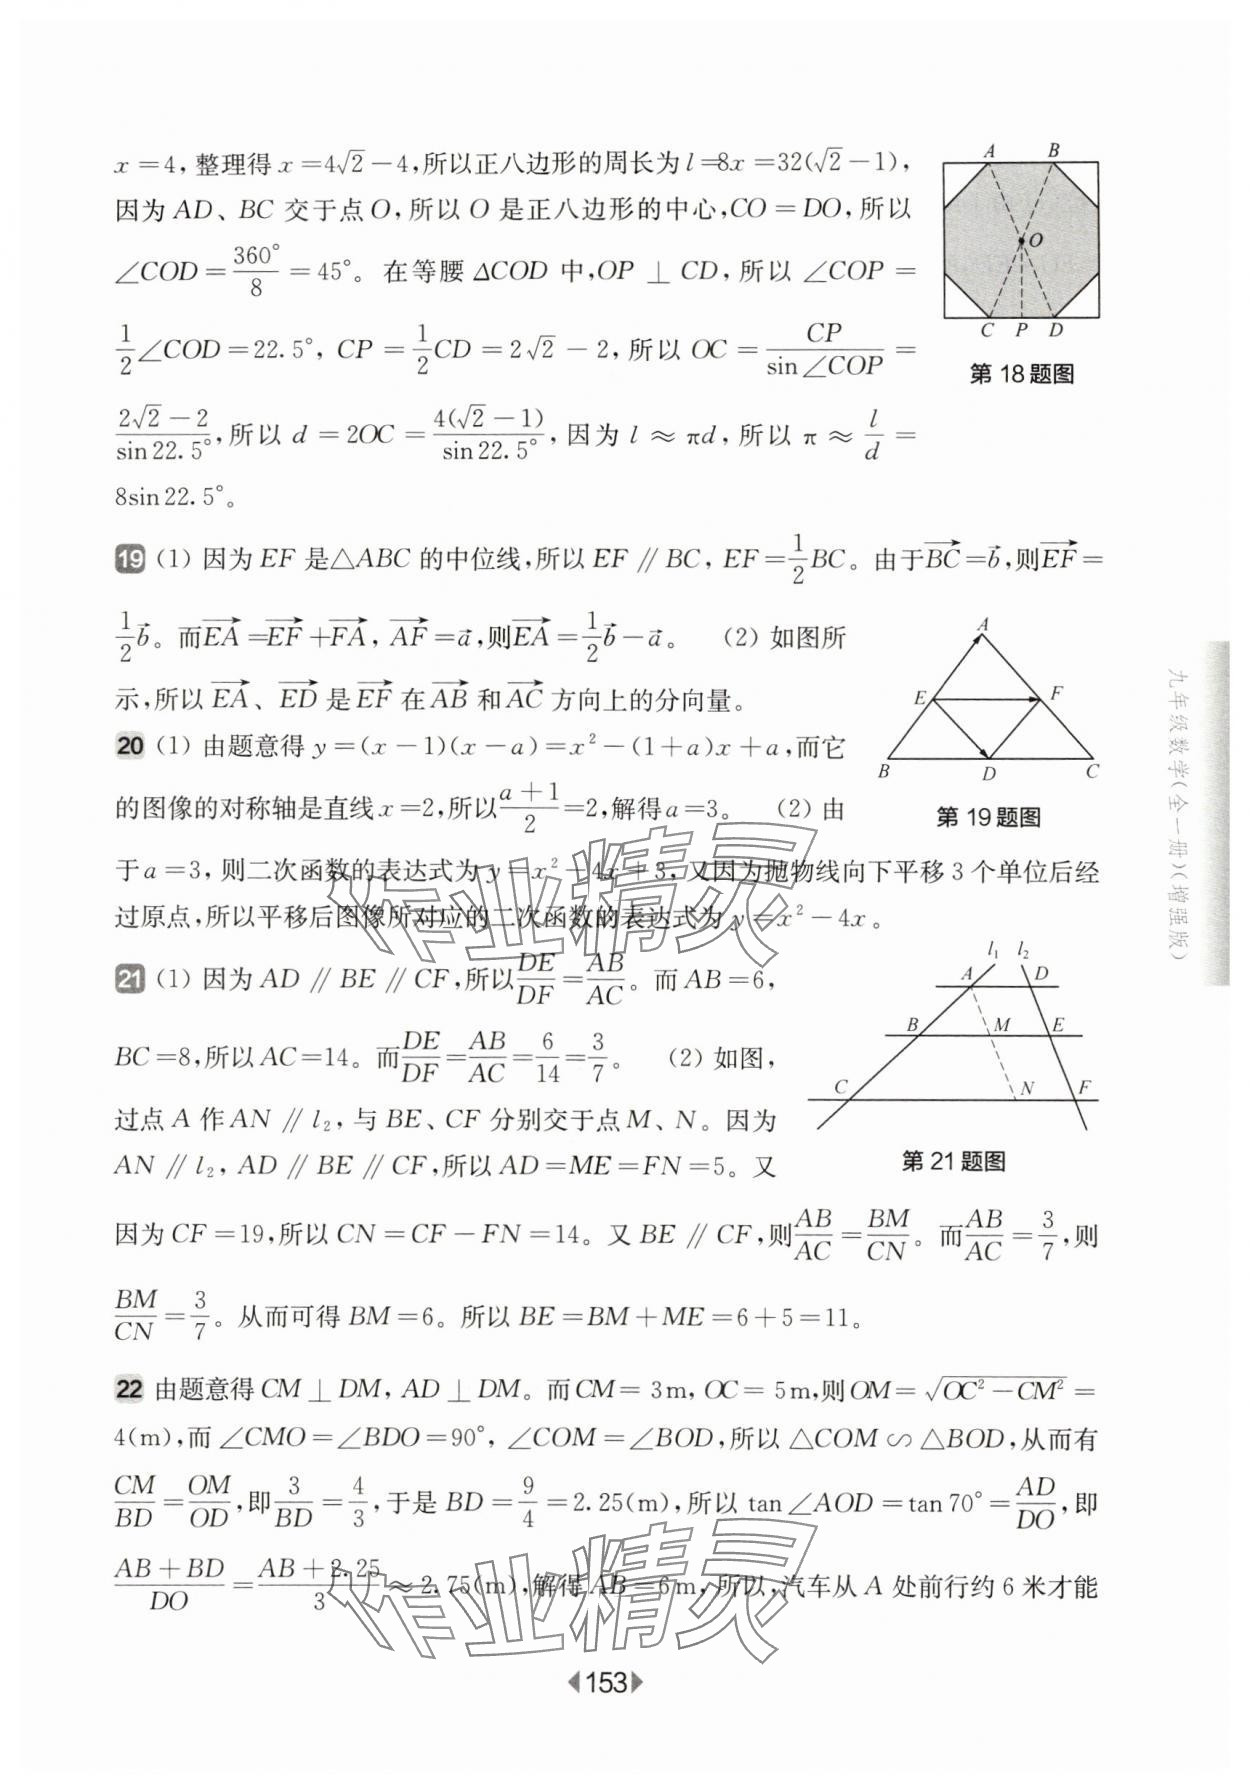 x=4,整理得 x=4√2-4,所以正八边形的周长为 l=8x=32(√2-1),
因为 AD、BC 交于点 O,所以 O 是正八边形的中心,CO=DO,所以
∠COD=360°/8=45°。在等腰 ΔCOD 中,OP⊥CD,所以 ∠COP=
1/2∠COD=22.5°, CP=1/2CD=2√2-2,所以 OC=CP/sin∠COP=
(2√2-2)/sin22.5°,所以 d=2OC=4(√2-1)/sin22.5°,因为 l≈πd,所以 π≈l/d=
8sin22.5°。
A B
O
C P D
第18题图
19 (1) 因为 EF 是△ABC 的中位线,所以 EF∥BC, EF=1/2BC。由于BC→=b→,则EF→=
1/2b→。而EA→=EF→+FA→, AF→=a→,则EA→=1/2b→-a→。 (2) 如图所
示,所以 EA→、ED→ 是 EF→ 在 AB→ 和 AC→ 方向上的分向量。
A
E F
B D C
第19题图
20 (1) 由题意得 y=(x-1)(x-a)=x²-(1+a)x+a,而它
的图像的对称轴是直线 x=2,所以(a+1)/2=2,解得 a=3。 (2) 由
于 a=3, 则二次函数的表达式为 y=x²-4x+3, 又因为抛物线向下平移 3 个单位后经
过原点,所以平移后图像所对应的二次函数的表达式为 y=x²-4x。
21 (1) 因为 AD∥BE∥CF,所以DE/DF=AB/AC。而 AB=6,
BC=8,所以 AC=14。而DE/DF=AB/AC=6/14=3/7。 (2) 如图,
过点 A 作 AN∥l₂,与 BE、CF 分别交于点 M、N。因为
AN∥l₂, AD∥BE∥CF,所以 AD=ME=FN=5。又
l₁ l₂
A D
B M E
C N F
第21题图
因为 CF=19,所以 CN=CF-FN=14。又 BE∥CF,则AB/AC=BM/CN。而AB/AC=3/7,则
BM/CN=3/7。从而可得 BM=6。所以 BE=BM+ME=6+5=11。
22 由题意得 CM⊥DM, AD⊥DM。而 CM=3m, OC=5m,则 OM=√(OC²-CM²)=
4(m),而 ∠CMO=∠BDO=90°, ∠COM=∠BOD,所以 △COM∽△BOD,从而有
CM/BD=OM/OD,即3/BD=4/3,于是 BD=9/4=2.25(m),所以 tan∠AOD=tan70°=AD/DO,即
(AB+BD)/DO=(AB+2.25)/3≈2.75(m),解得 AB=6m,所以,汽车从 A 处前行约 6 米才能
153
九年级数学(全一册)(增强版)
作业精灵
作业精灵